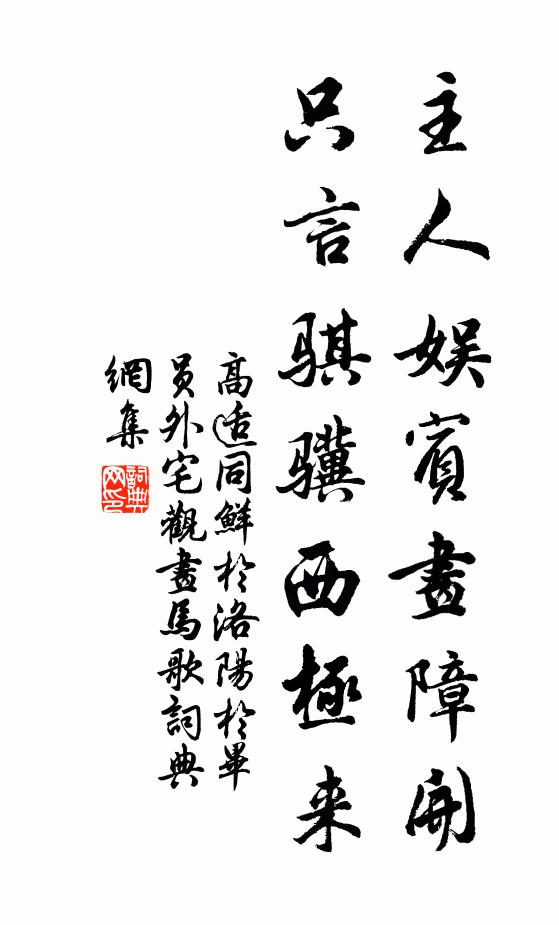 主人娱賓畫障開
只言骐骥西極来
高适同鮮於洛陽於畢
員外宅觀畫馬歌詞典
網集
詞典
网印